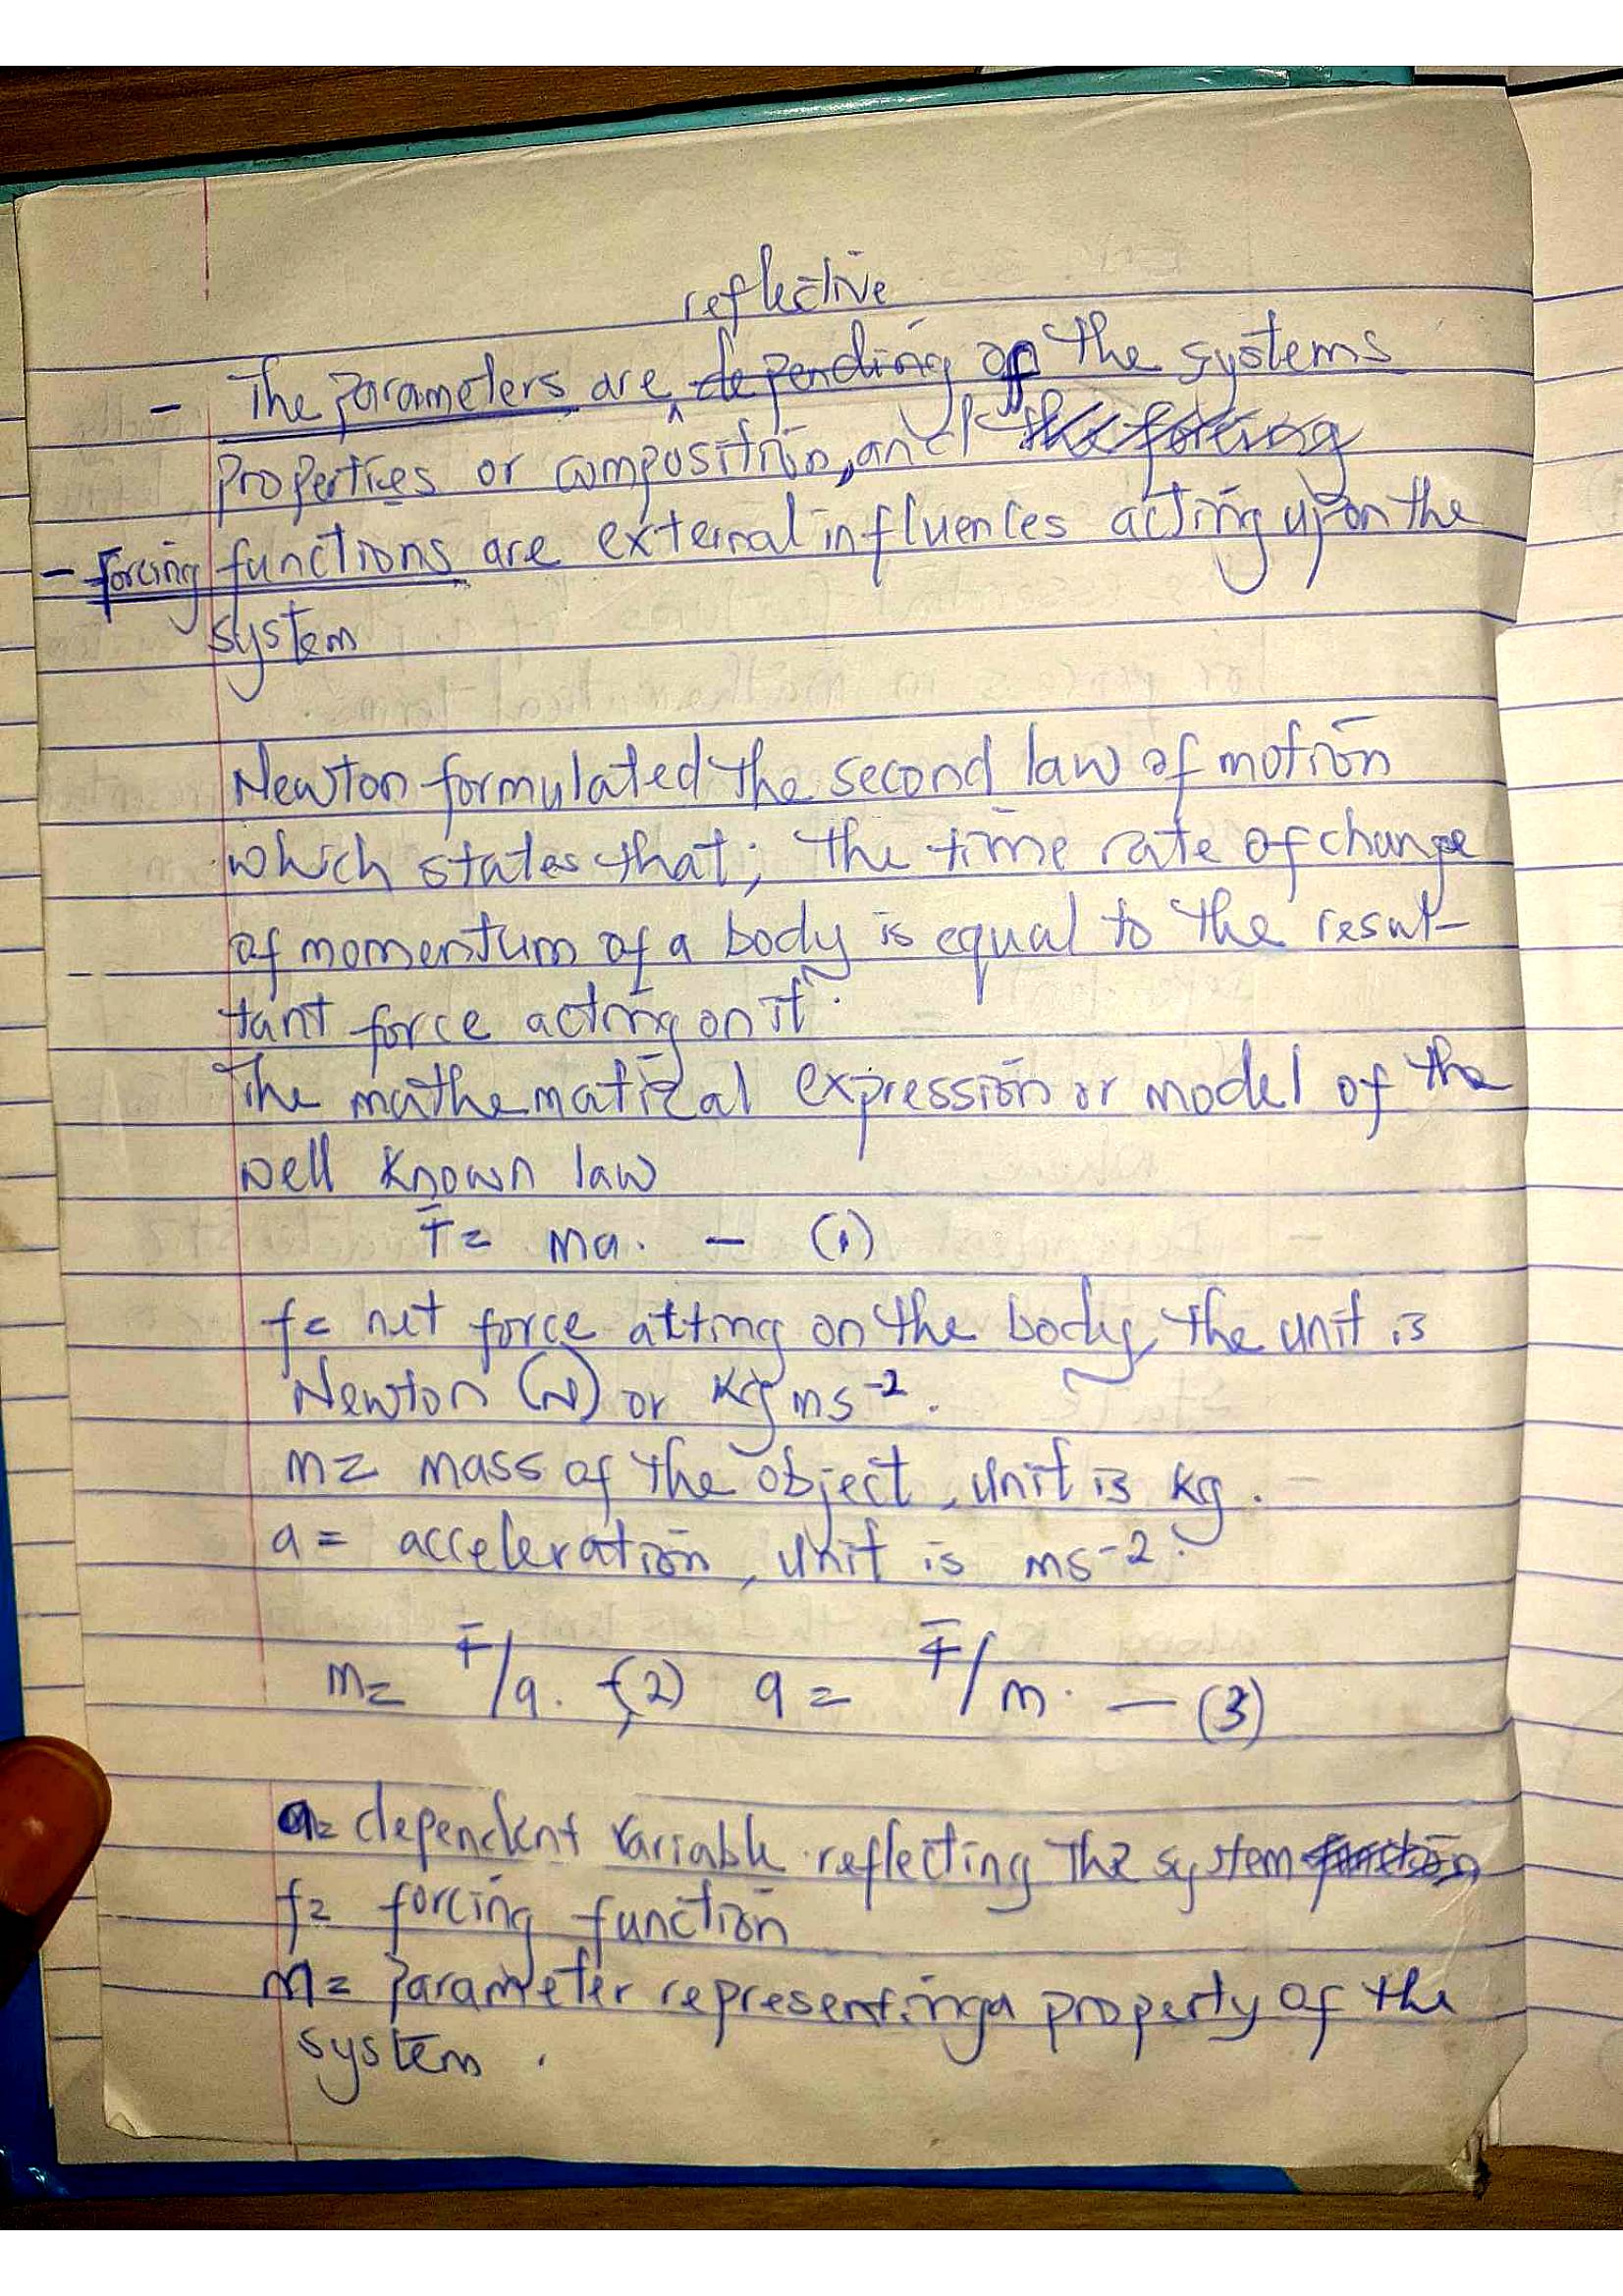 reflective
- The parameters are depending of the systems
properties or composition, and the forcing
- forcing functions are external influences acting upon the
system
Newton formulated the second law of motion
which states that; the time rate of change
of momentum of a body is equal to the resul-
tant force acting on it.
The mathematical expression or model of the
well known law
F = ma. - (1)
f = net force atting on the body, the unit is
Newton (N) or Kgms⁻².
m = mass of the object, unit is kg.
a = acceleration, unit is ms⁻².
m = F/a. - (2) a = F/m. - (3)
a = dependent variable reflecting the system function
f = forcing function
m = parameter representing a property of the
system.